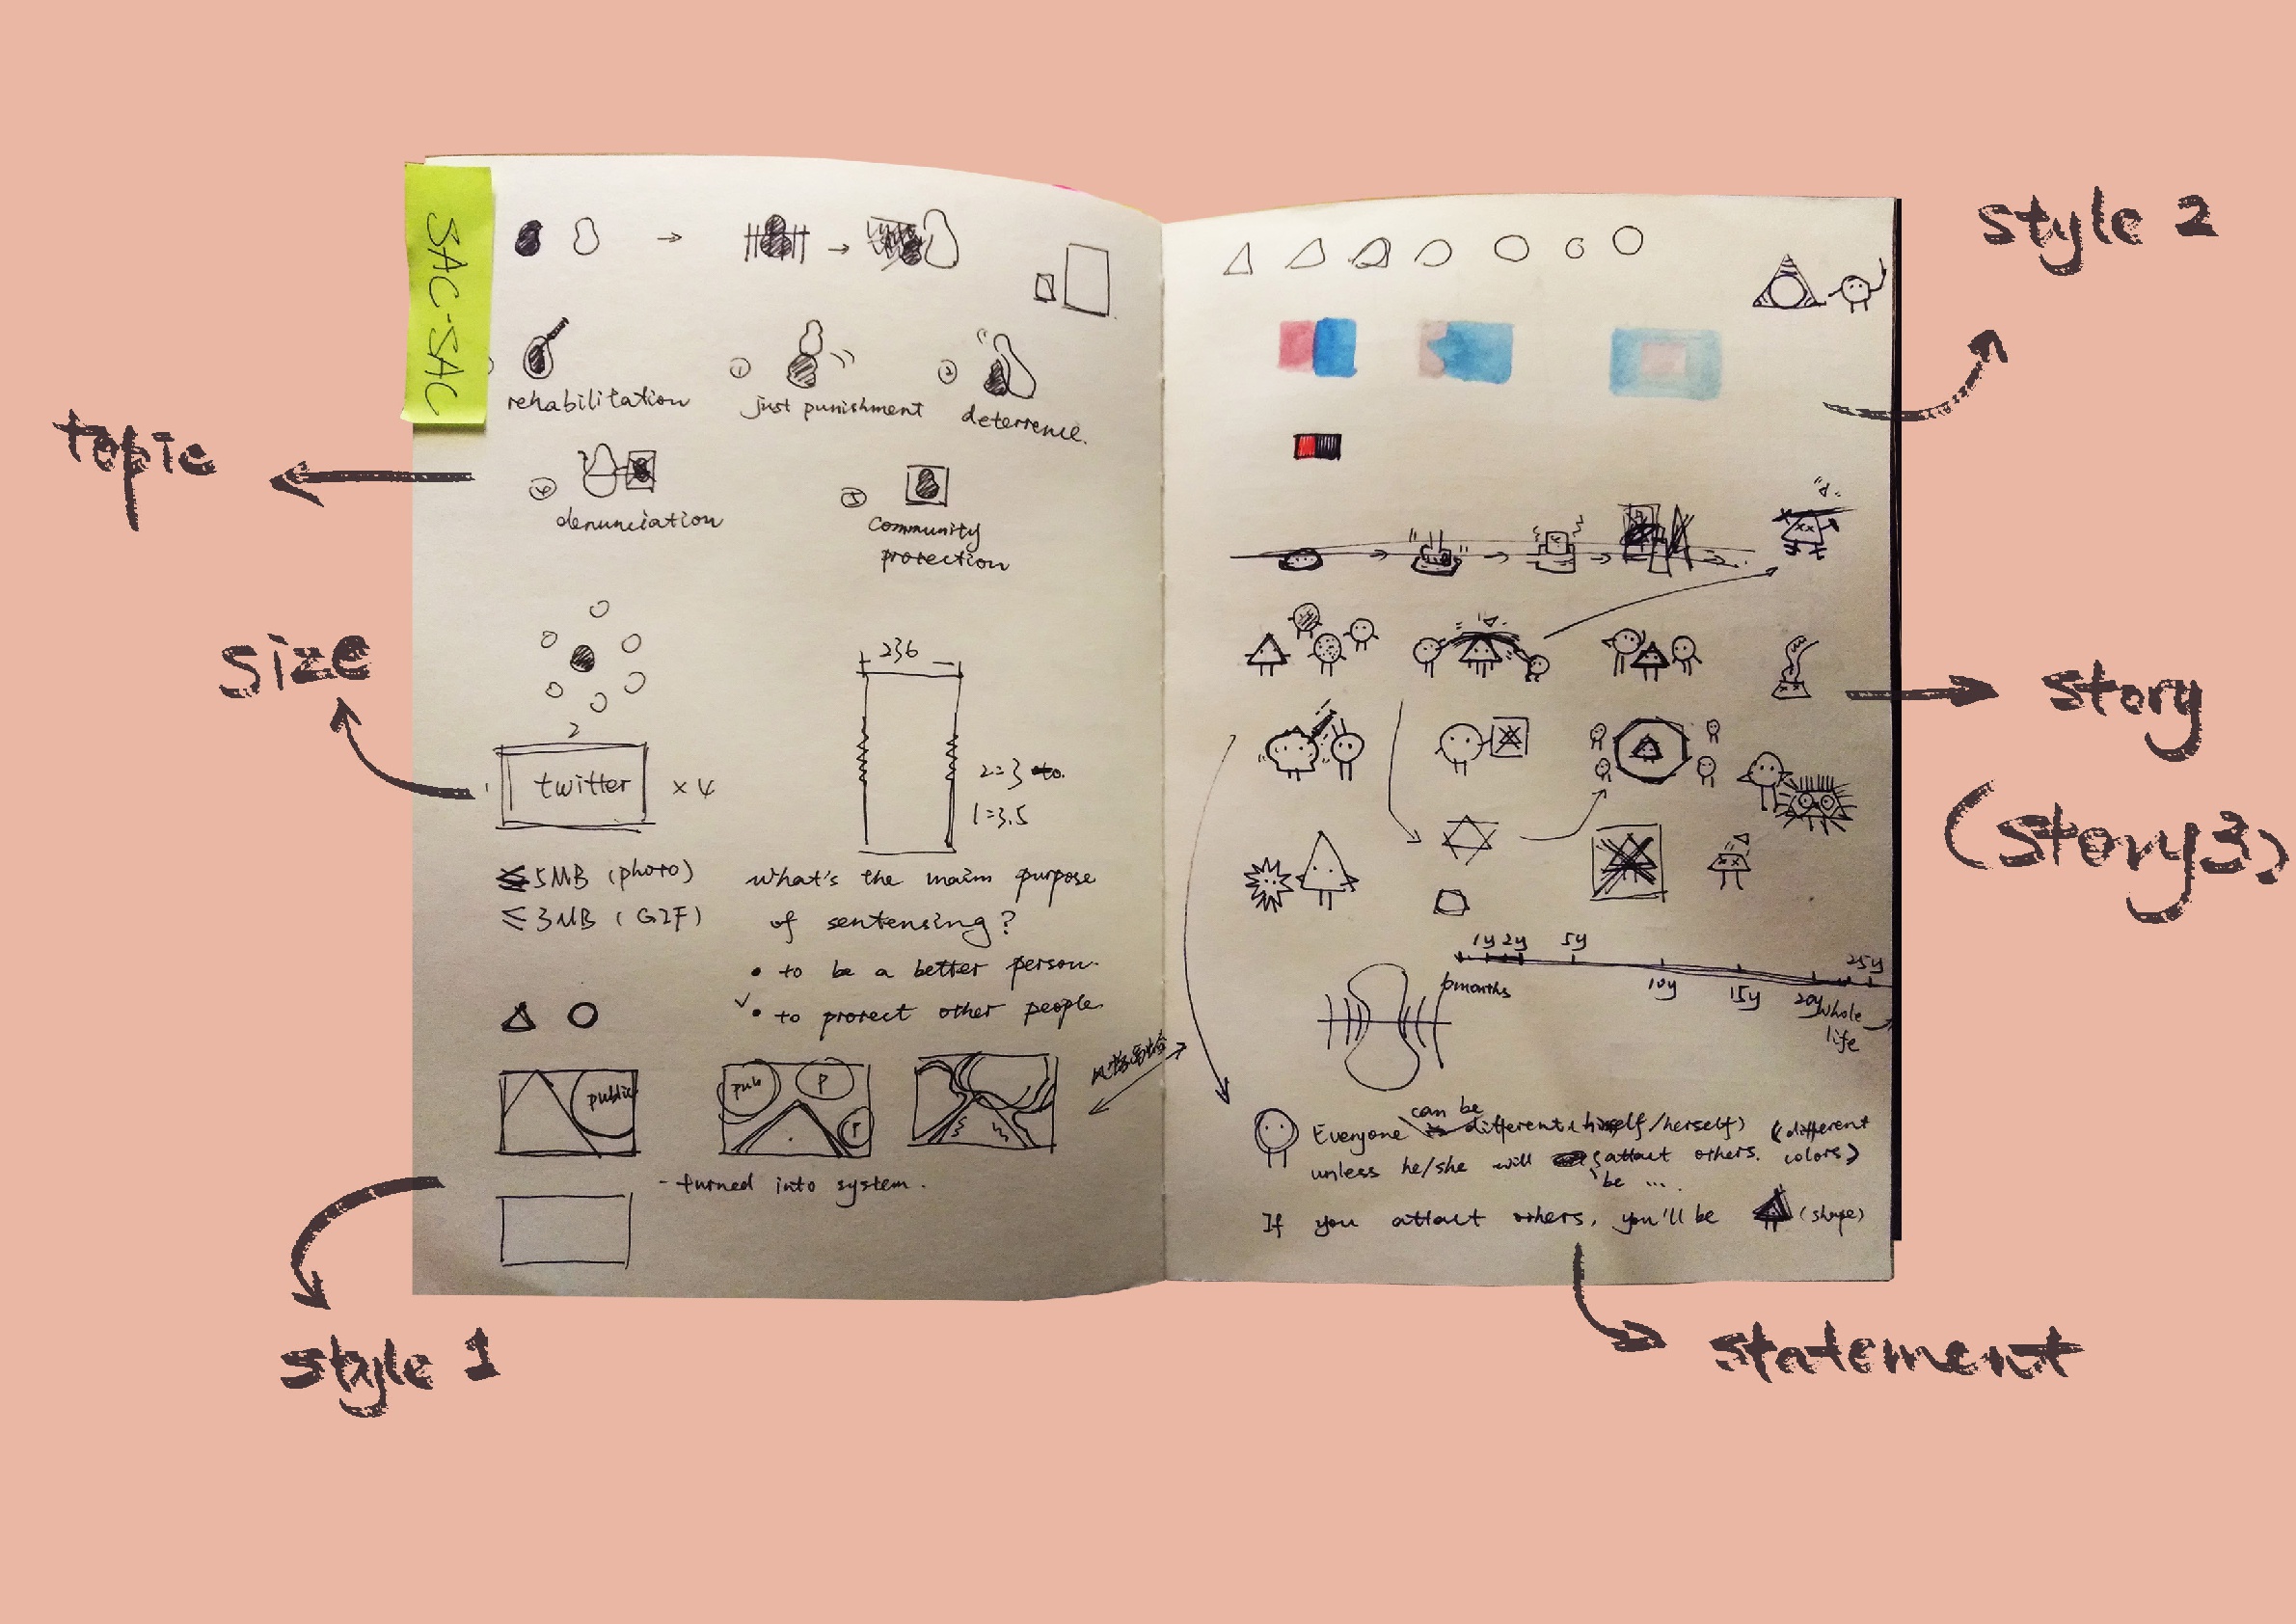 SAC-SAC
rehabilitation
① just punishment
② deterrence.
④ denunciation
⑤ Community
protection
topic
size
236
2
1
twitter × 4
2=3
1=3.5
≤5MB (photo)
≤3MB (GIF)
what's the maim purpose
of sentensing?
• to be a better person.
✓• to protect other people.
public
pub
P
- turned into system.
style 1
style 2
story
(story3)
1y 2y 5y 25y
6months 10y 15y 20y whole
life
can be
Everyone is different (himself/herself) (different
unless he/she will attact others. colors)
be ....
If you attact others, you'll be (shape)
statement